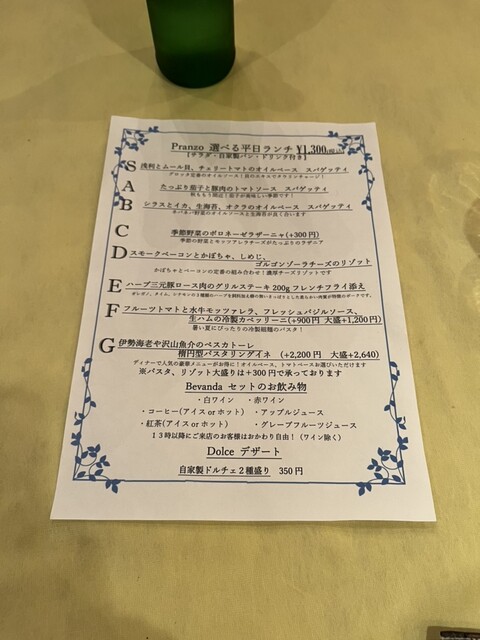 Pranzo 選べる平日ランチ ¥1,300(税込)
【サラダ・自家製パン・ドリンク付き】
S 浅利とムール貝、チェリートマトのオイルベース スパゲッティ
A たっぷり茄子と豚肉のトマトソース スパゲッティ
B シラスとイカ、生海苔、オクラのオイルベース スパゲッティ
ネバネバ野菜のオイルソースと生海苔が良く合います
C 季節野菜のボロネーゼラザーニャ(+300円)
季節の野菜とモッツァレラチーズがたっぷりのラザニア
D スモークベーコンとかぼちゃ、しめじ、
ゴルゴンゾーラチーズのリゾット
かぼちゃとベーコンの定番の組み合わせ!濃厚チーズリゾットです
E ハーブ三元豚ロース肉のグリルステーキ200g フレンチフライ添え
F フルーツトマトと水牛モッツァレラ、フレッシュバジルソース、
生ハムの冷製カペッリーニ(+900円 大盛+1,200円)
暑い夏にぴったりの冷製細麺のパスタ!
G 伊勢海老や沢山魚介のペスカトーレ
楕円型パスタリングイネ (+2,200円 大盛+2,640)
ディナーで人気の豪華メニューがお得に!オイルベース、トマトベースお選びいただけます
※パスタ、リゾット大盛りは+300円で承っております
Bevanda セットのお飲み物
・白ワイン ・赤ワイン
・コーヒー(アイス or ホット) ・アップルジュース
・紅茶(アイス or ホット) ・グレープフルーツジュース
13時以降にご来店のお客様はおかわり自由!(ワイン除く)
Dolce デザート
自家製ドルチェ2種盛り 350円